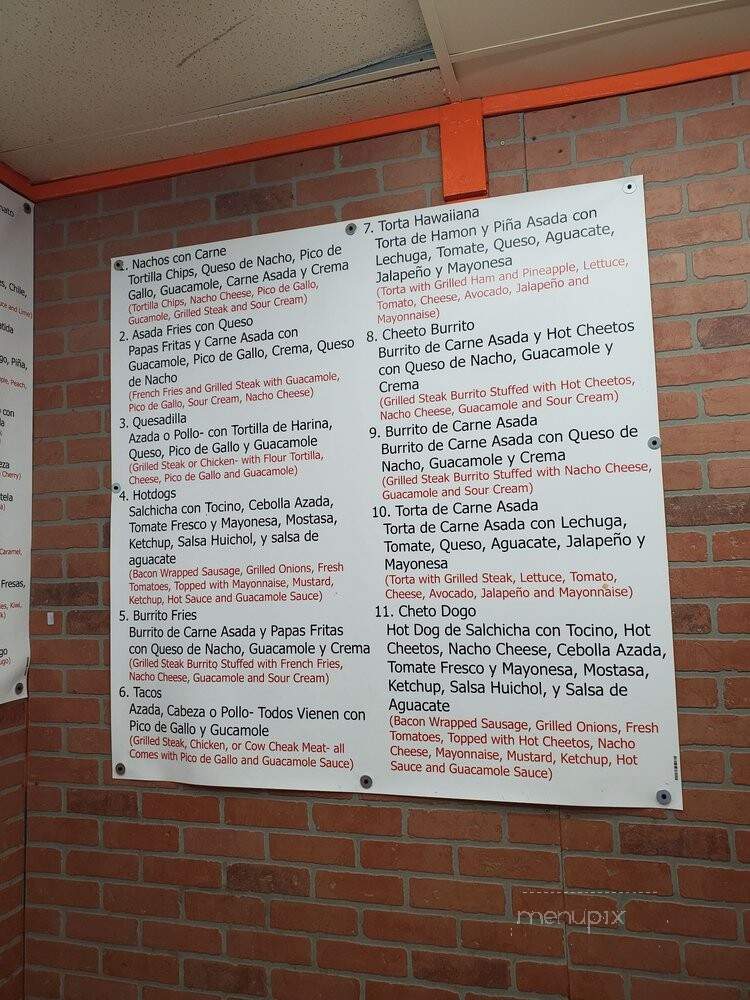 1. Nachos con Carne
Tortilla Chips, Queso de Nacho, Pico de
Gallo, Guacamole, Carne Asada y Crema
(Tortilla Chips, Nacho Cheese, Pico de Gallo,
Gucamole, Grilled Steak and Sour Cream)
2. Asada Fries con Queso
Papas Fritas y Carne Asada con
Guacamole, Pico de Gallo, Crema, Queso
de Nacho
(French Fries and Grilled Steak with Guacamole,
Pico de Gallo, Sour Cream, Nacho Cheese)
3. Quesadilla
Azada o Pollo- con Tortilla de Harina,
Queso, Pico de Gallo y Guacamole
(Grilled Steak or Chicken- with Flour Tortilla,
Cheese, Pico de Gallo and Guacamole)
4. Hotdogs
Salchicha con Tocino, Cebolla Azada,
Tomate Fresco y Mayonesa, Mostasa,
Ketchup, Salsa Huichol, y salsa de
aguacate
(Bacon Wrapped Sausage, Grilled Onions, Fresh
Tomatoes, Topped with Mayonnaise, Mustard,
Ketchup, Hot Sauce and Guacamole Sauce)
5. Burrito Fries
Burrito de Carne Asada y Papas Fritas
con Queso de Nacho, Guacamole y Crema
(Grilled Steak Burrito Stuffed with French Fries,
Nacho Cheese, Guacamole and Sour Cream)
6. Tacos
Azada, Cabeza o Pollo- Todos Vienen con
Pico de Gallo y Gucamole
(Grilled Steak, Chicken, or Cow Cheak Meat- all
Comes with Pico de Gallo and Guacamole Sauce)
7. Torta Hawaiiana
Torta de Hamon y Piña Asada con
Lechuga, Tomate, Queso, Aguacate,
Jalapeño y Mayonesa
(Torta with Grilled Ham and Pineapple, Lettuce,
Tomato, Cheese, Avocado, Jalapeño and
Mayonnaise)
8. Cheeto Burrito
Burrito de Carne Asada y Hot Cheetos
con Queso de Nacho, Guacamole y
Crema
(Grilled Steak Burrito Stuffed with Hot Cheetos,
Nacho Cheese, Guacamole and Sour Cream)
9. Burrito de Carne Asada
Burrito de Carne Asada con Queso de
Nacho, Guacamole y Crema
(Grilled Steak Burrito Stuffed with Nacho Cheese,
Guacamole and Sour Cream)
10. Torta de Carne Asada
Torta de Carne Asada con Lechuga,
Tomate, Queso, Aguacate, Jalapeño y
Mayonesa
(Torta with Grilled Steak, Lettuce, Tomato,
Cheese, Avocado, Jalapeño and Mayonnaise)
11. Cheto Dogo
Hot Dog de Salchicha con Tocino, Hot
Cheetos, Nacho Cheese, Cebolla Azada,
Tomate Fresco y Mayonesa, Mostasa,
Ketchup, Salsa Huichol, y Salsa de
Aguacate
(Bacon Wrapped Sausage, Grilled Onions, Fresh
Tomatoes, Topped with Hot Cheetos, Nacho
Cheese, Mayonnaise, Mustard, Ketchup, Hot
Sauce and Guacamole Sauce)
Chile,
Piña,
Peach,
con
Cherry)
Caramel,
Fresas,
Kiwi,
menupix